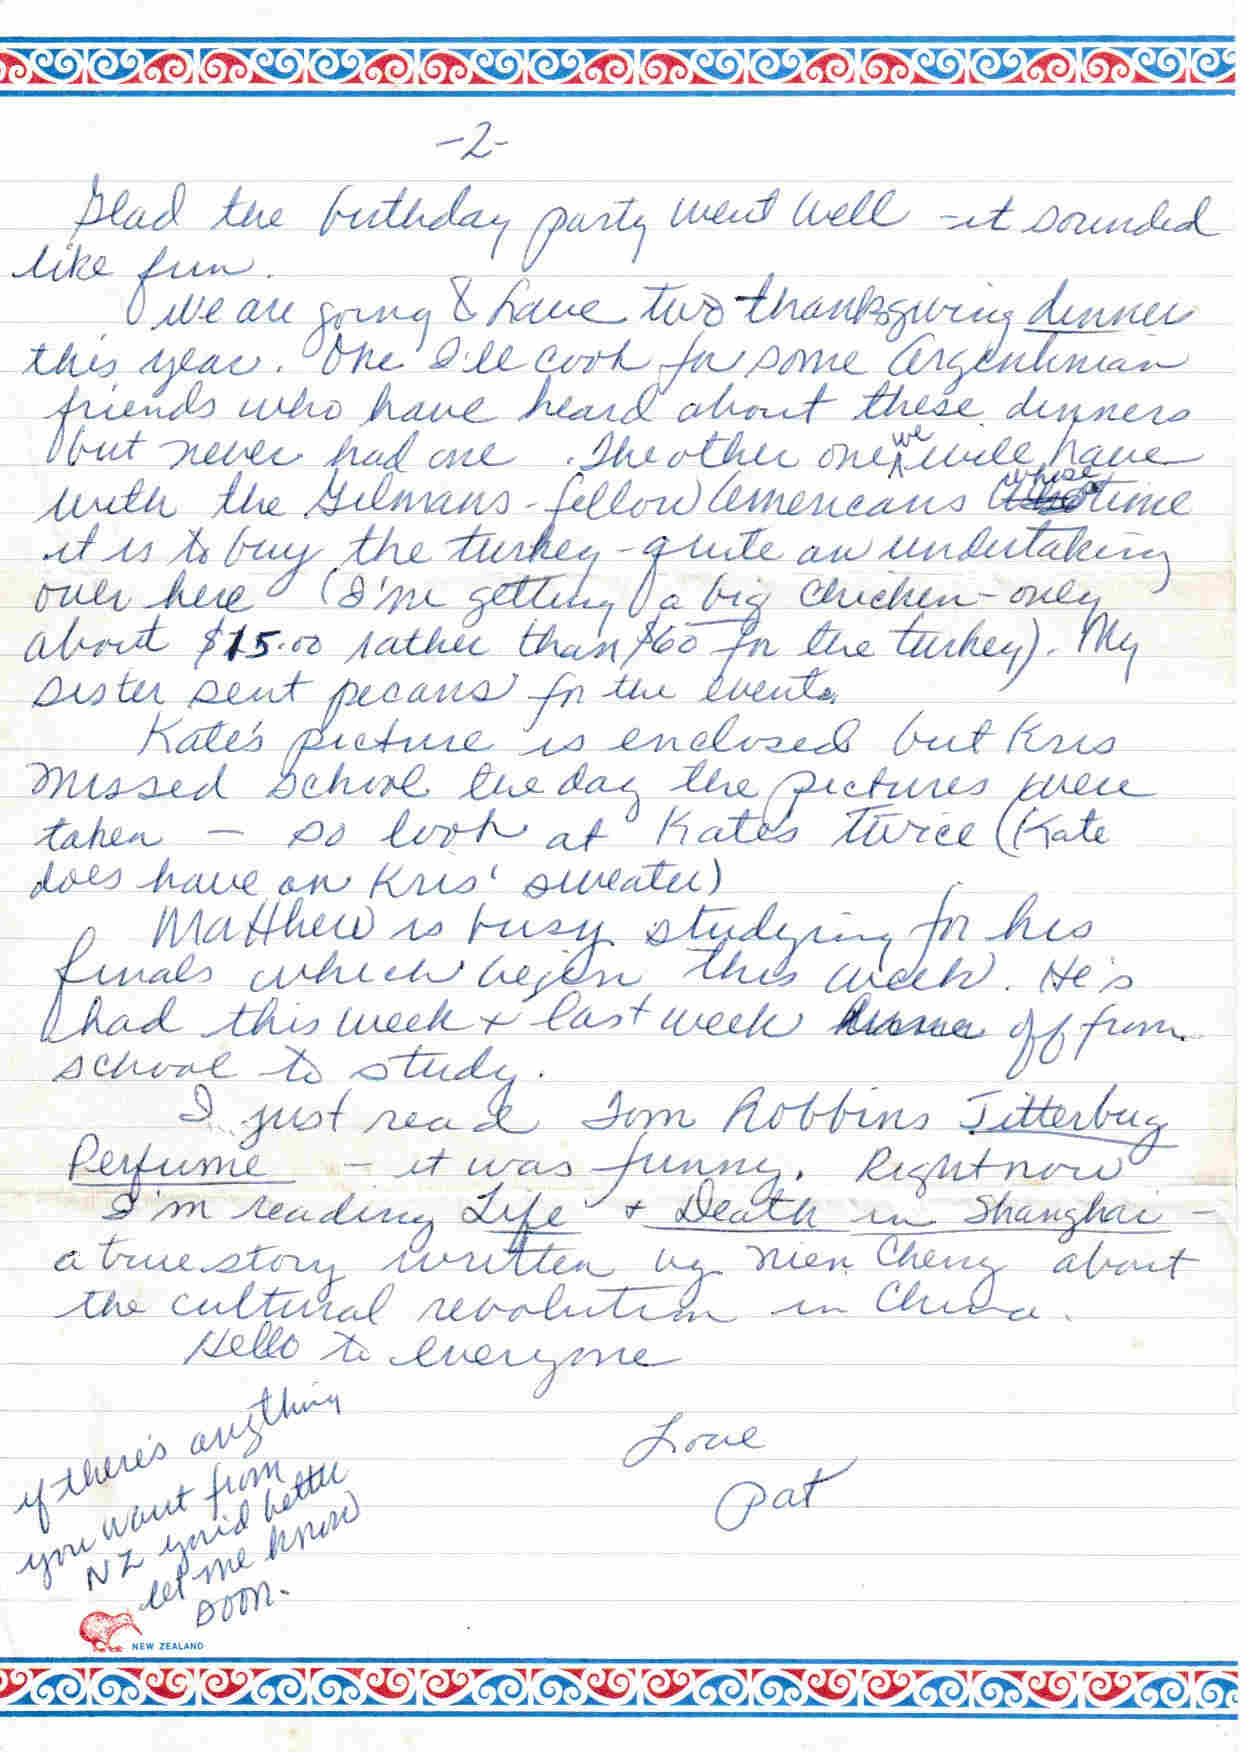 -2-
Glad the birthday party went well - it sounded
like fun.
We are going to have two thanksgiving dinner
this year. One I'll cook for some Argentinian
friends who have heard about these dinners
but never had one. The other one we will have
with the Gilmans - fellow Americans whose time
it is to buy the turkey - quite an undertaking
over here (I'm getting a big chicken - only
about $15.00 rather than $60 for the turkey). My
sister sent pecans for the events.
Kate's picture is enclosed but Kris
missed school the day the pictures were
taken — so look at Kate's twice (Kate
does have on Kris' sweater)
Matthew is busy studying for his
finals which begin this week. He's
had this week + last week off from
school to study.
I just read Tom Robbins Jitterbug
Perfume - it was funny. Right now
I'm reading Life + Death in Shanghai -
a true story written by Nien Cheng about
the cultural revolution in China.
Hello to everyone
Love
Pat
if there's anything
you want from
NZ you'd better
let me know
soon.
NEW ZEALAND